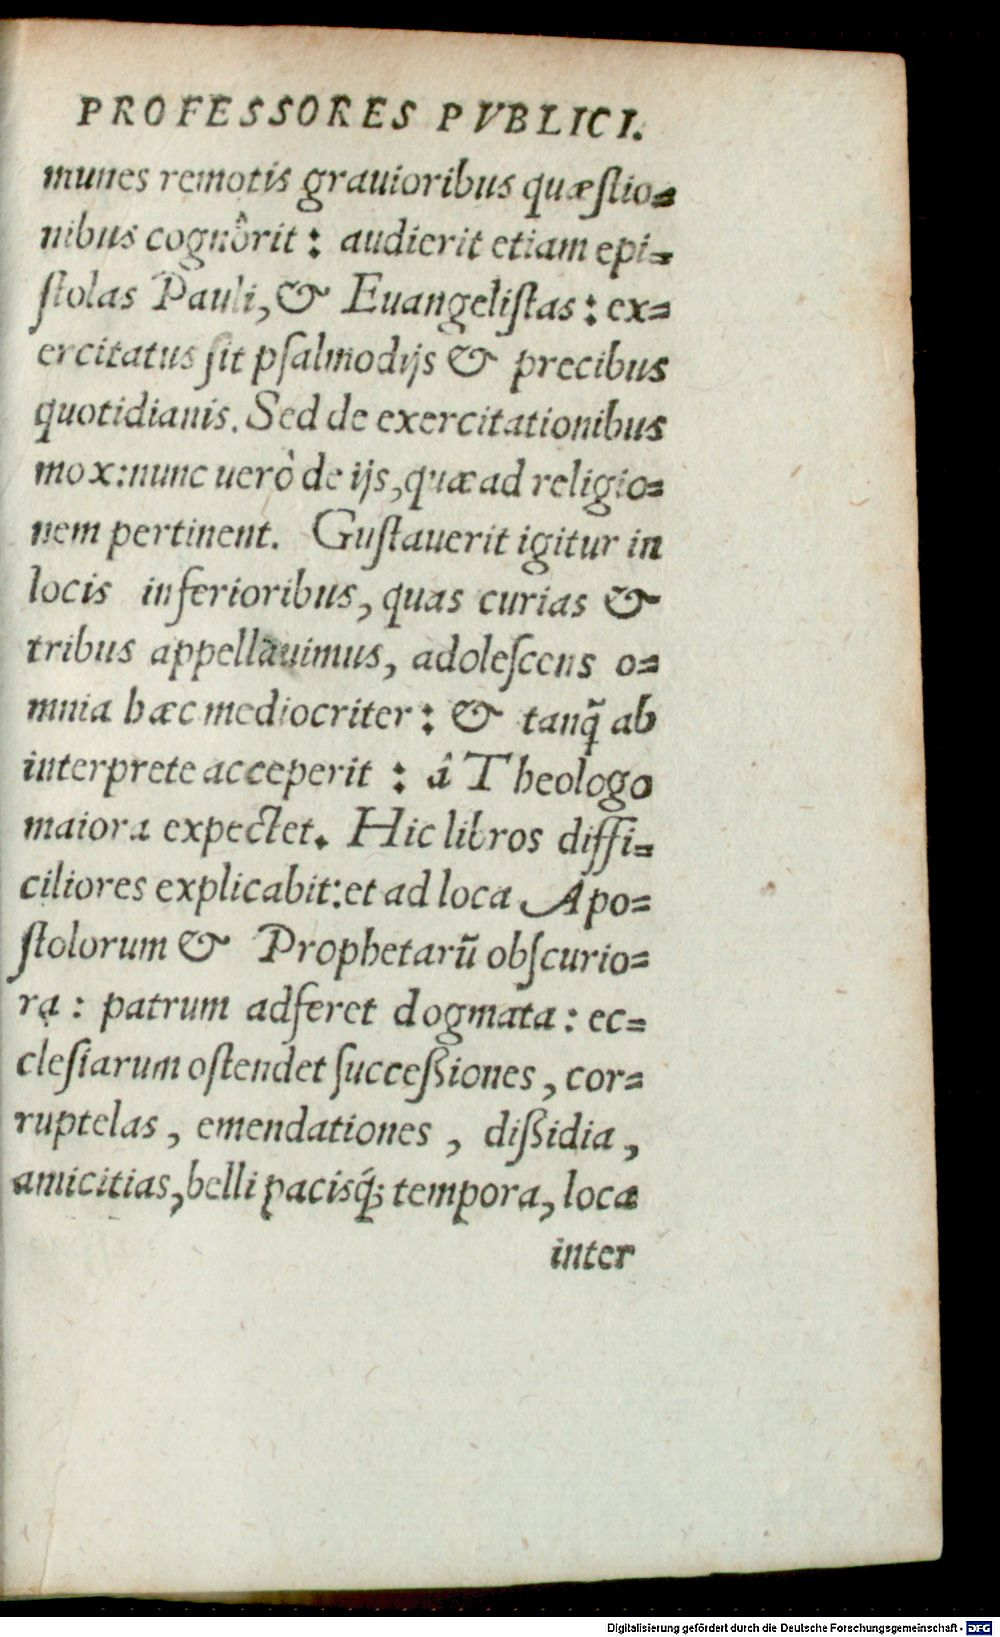 PROFESSORES PVBLICI.
munes remotis grauioribus quæſtio=
nibus cognôrit : audierit etiam epi=
ſtolas Pauli, & Euangeliſtas : ex=
ercitatus ſit pſalmodijs & precibus
quotidianis. Sed de exercitationibus
mox: nunc uerò de ijs, quæ ad religio=
nem pertinent. Guſtauerit igitur in
locis inferioribus, quas curias &
tribus appellauimus, adoleſcens o=
mnia hæc mediocriter : & tanq̃ ab
interprete acceperit : â Theologo
maiora expectet. Hic libros diffi=
ciliores explicabit: et ad loca Apo=
ſtolorum & Prophetarũ obſcurio=
ra : patrum adferet dogmata : ec=
cleſiarum oſtendet ſucceßiones, cor=
ruptelas, emendationes, dißidia,
amicitias, belli pacisq́; tempora, loca
inter
Digitalisierung gefördert durch die Deutsche Forschungsgemeinschaft - DFG